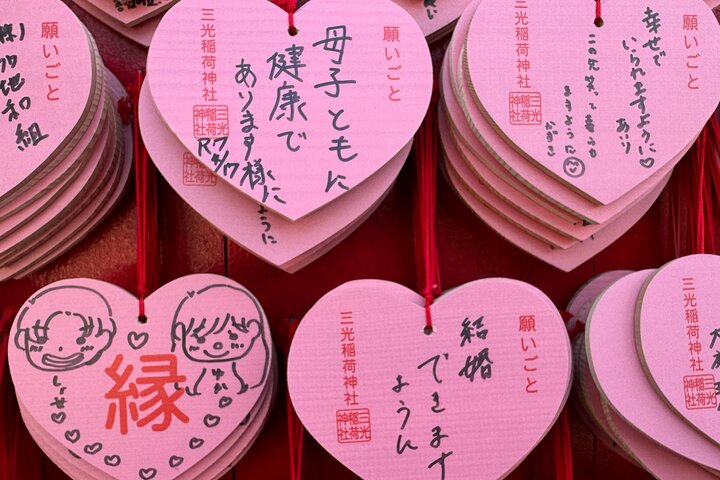 願いごと
地和組
願いごと
母子ともに
健康で
あります様に
ように
三光稲荷神社
三光稲荷神社
願いごと
幸せで
いられますように♡
あり
ますように
かずき
三光稲荷神社
三光稲荷神社
縁
願いごと
結婚
できます
ように
三光稲荷神社
三光稲荷神社
三光稲荷神社
三光稲荷神社